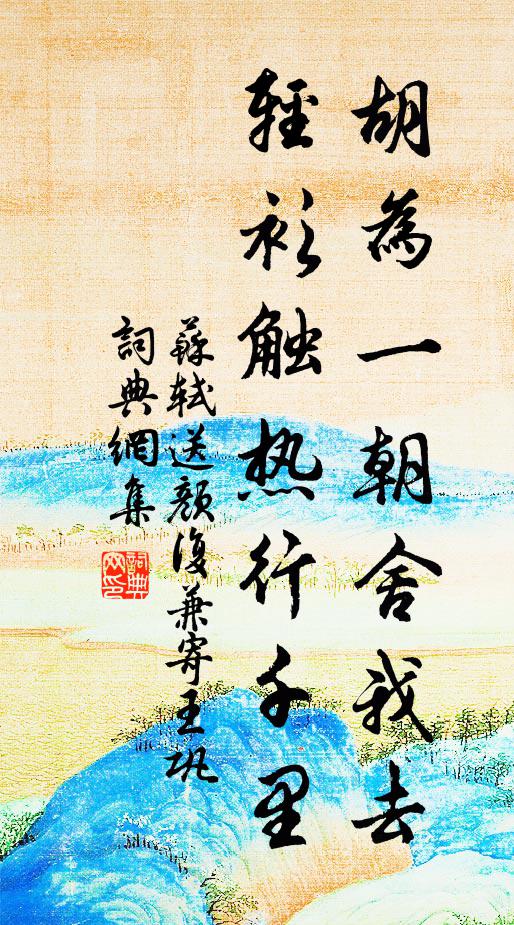 胡為一朝舍我去
輕衫触热行千里
蘇軾送顏復兼寄王巩
詞典網集
詞典
网印